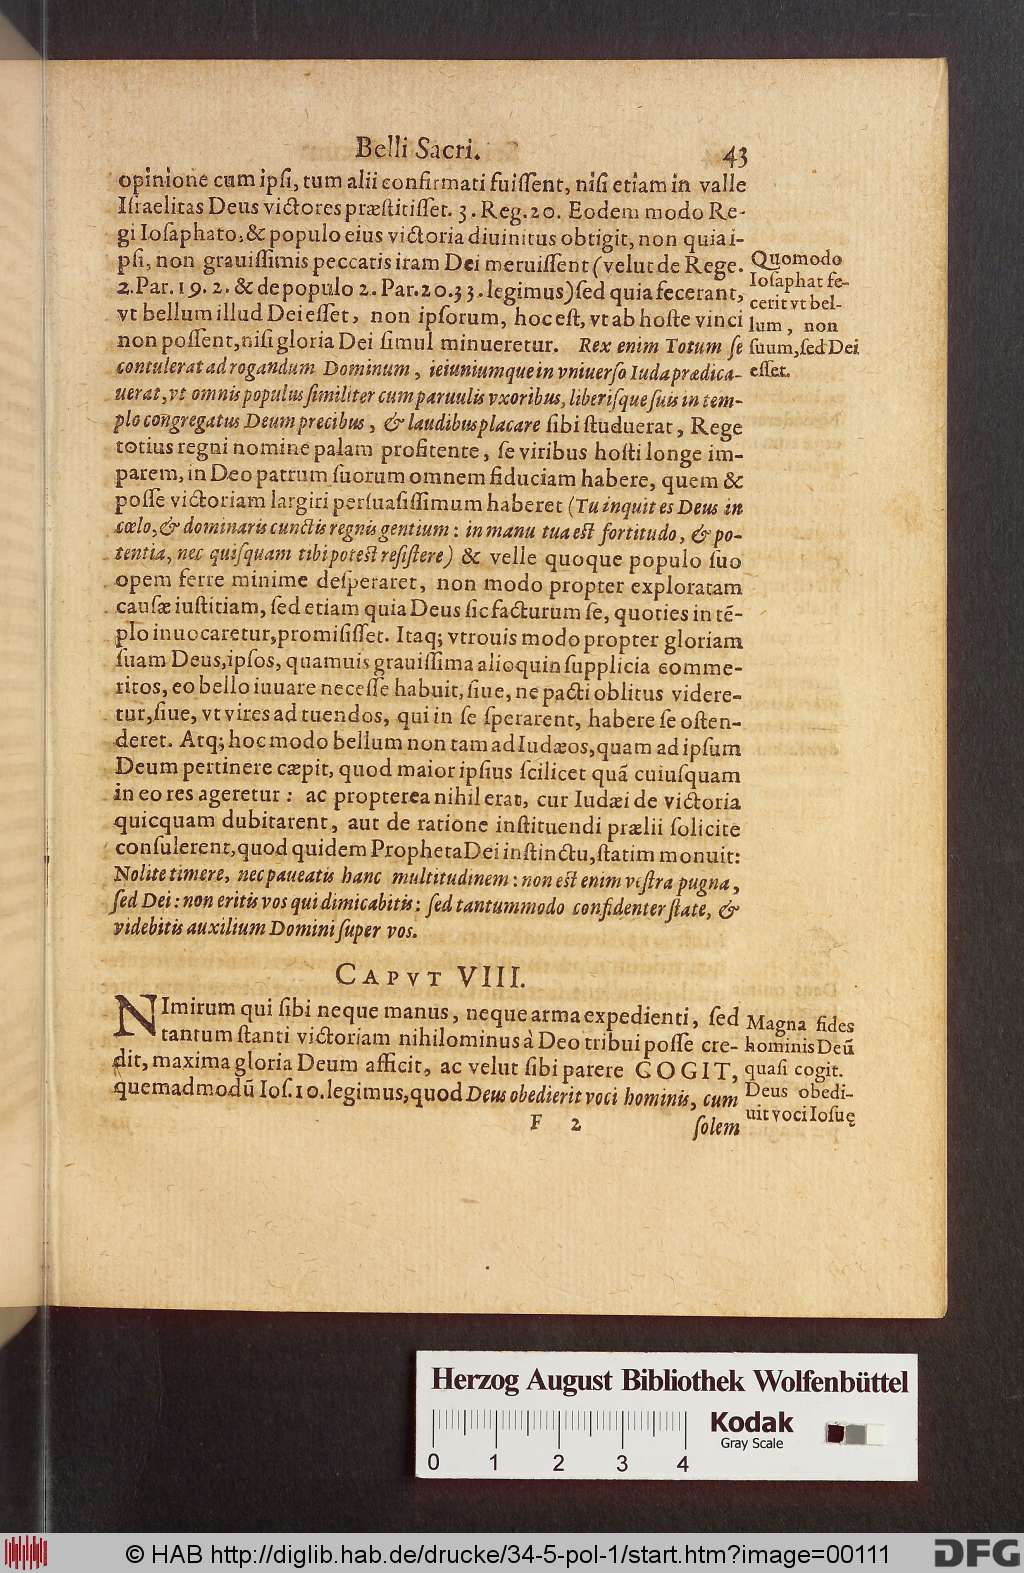 Belli Sacri. 43
opinione cum ipſi, tum alii confirmati fuiſſent, niſi etiam in valle
Iſraelitas Deus victores præſtitiſſet. 3. Reg. 20. Eodem modo Re-
gi Ioſaphato, & populo eius victoria diuinitus obtigit, non quia i-
pſi, non grauiſſimis peccatis iram Dei meruiſſent (velut de Rege.
2. Par. 19. 2. & de populo 2. Par. 20. 33. legimus) ſed quia fecerant,
vt bellum illud Dei eſſet, non ipſorum, hoc eſt, vt ab hoſte vinci
non poſſent, niſi gloria Dei ſimul minueretur. Rex enim Totum ſe
contulerat ad rogandum Dominum, ieiuniumque in vniuerſo Iuda prædica-
uerat, vt omnis populus ſimiliter cum paruulis vxoribus, liberiſque ſuis in tem-
plo congregatus Deum precibus, & laudibus placare ſibi ſtuduerat, Rege
totius regni nomine palam profitente, ſe viribus hoſti longe im-
parem, in Deo patrum ſuorum omnem fiduciam habere, quem &
poſſe victoriam largiri perſuaſiſſimum haberet (Tu inquit es Deus in
cœlo, & dominaris cunctis regnis gentium: in manu tua eſt fortitudo, & po-
tentia, nec quiſquam tibi poteſt reſiſtere) & velle quoque populo ſuo
opem ferre minime deſperaret, non modo propter exploratam
cauſæ iuſtitiam, ſed etiam quia Deus ſic facturum ſe, quoties in tē-
plo inuocaretur, promiſiſſet. Itaq; vtrouis modo propter gloriam
ſuam Deus, ipſos, quamuis grauiſſima alioquin ſupplicia comme-
ritos, eo bello iuuare neceſſe habuit, ſiue, ne pacti oblitus videre-
tur, ſiue, vt vires ad tuendos, qui in ſe ſperarent, habere ſe oſten-
deret. Atq; hoc modo bellum non tam ad Iudæos, quam ad ipſum
Deum pertinere cæpit, quod maior ipſius ſcilicet quā cuiuſquam
in eo res ageretur: ac propterea nihil erat, cur Iudæi de victoria
quicquam dubitarent, aut de ratione inſtituendi prælii ſolicite
conſulerent, quod quidem Propheta Dei inſtinctu, ſtatim monuit:
Nolite timere, nec paueatis hanc multitudinem: non eſt enim veſtra pugna,
ſed Dei: non eritis vos qui dimicabitis: ſed tantummodo confidenter ſtate, &
videbitis auxilium Domini ſuper vos.
Quomodo
Ioſaphat fe-
cerit vt bel-
lum, non
ſuum, ſed Dei
eſſet.
CAPVT VIII.
NImirum qui ſibi neque manus, neque arma expedienti, ſed
tantum ſtanti victoriam nihilominus à Deo tribui poſſe cre-
dit, maxima gloria Deum afficit, ac velut ſibi parere COGIT,
quemadmodū Ioſ. 10. legimus, quod Deus obedierit voci hominis, cum
Magna fides
hominis Deū
quaſi cogit.
Deus obedi-
uit voci Ioſuę
F 2 ſolem
Herzog August Bibliothek Wolfenbüttel
0 1 2 3 4
Kodak
Gray Scale
© HAB http://diglib.hab.de/drucke/34-5-pol-1/start.htm?image=00111
DFG